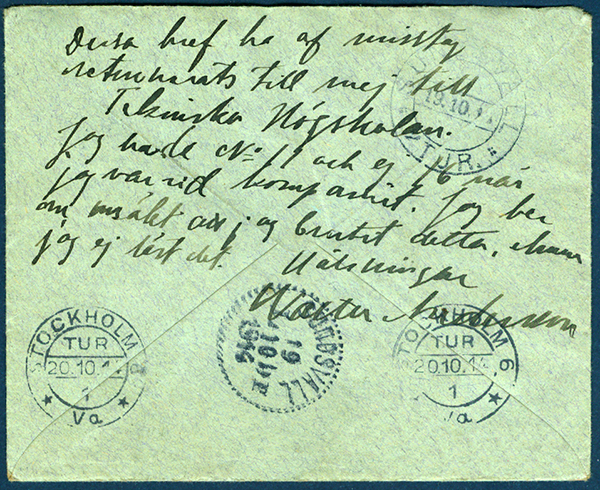 Dessa bref ha af misstag
returnerats till mej till
Tekniska Högskolan.
Jag hade No 1 och ej 16 när
jag var vid kompaniet. Jag ber
om ursäkt att jag brutit detta, men
jag ej läst det.
Hälsningar
Walter Andersson
SUNDSVALL
19.10.14
TUR.
STOCKHOLM 6
TUR
20.10.14
1
Va
SUNDSVALL
19
10
STOCKHOLM 6
TUR
20.10.14
1
Va